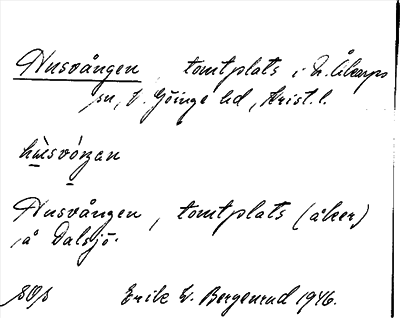 Husvången, tomtplats i N. Åkarps
sn, V. Göinge hd, Krist. l.
Husvången, tomtplats (åker)
å Dalsjö.
Erik W. Bergenrud 1946.